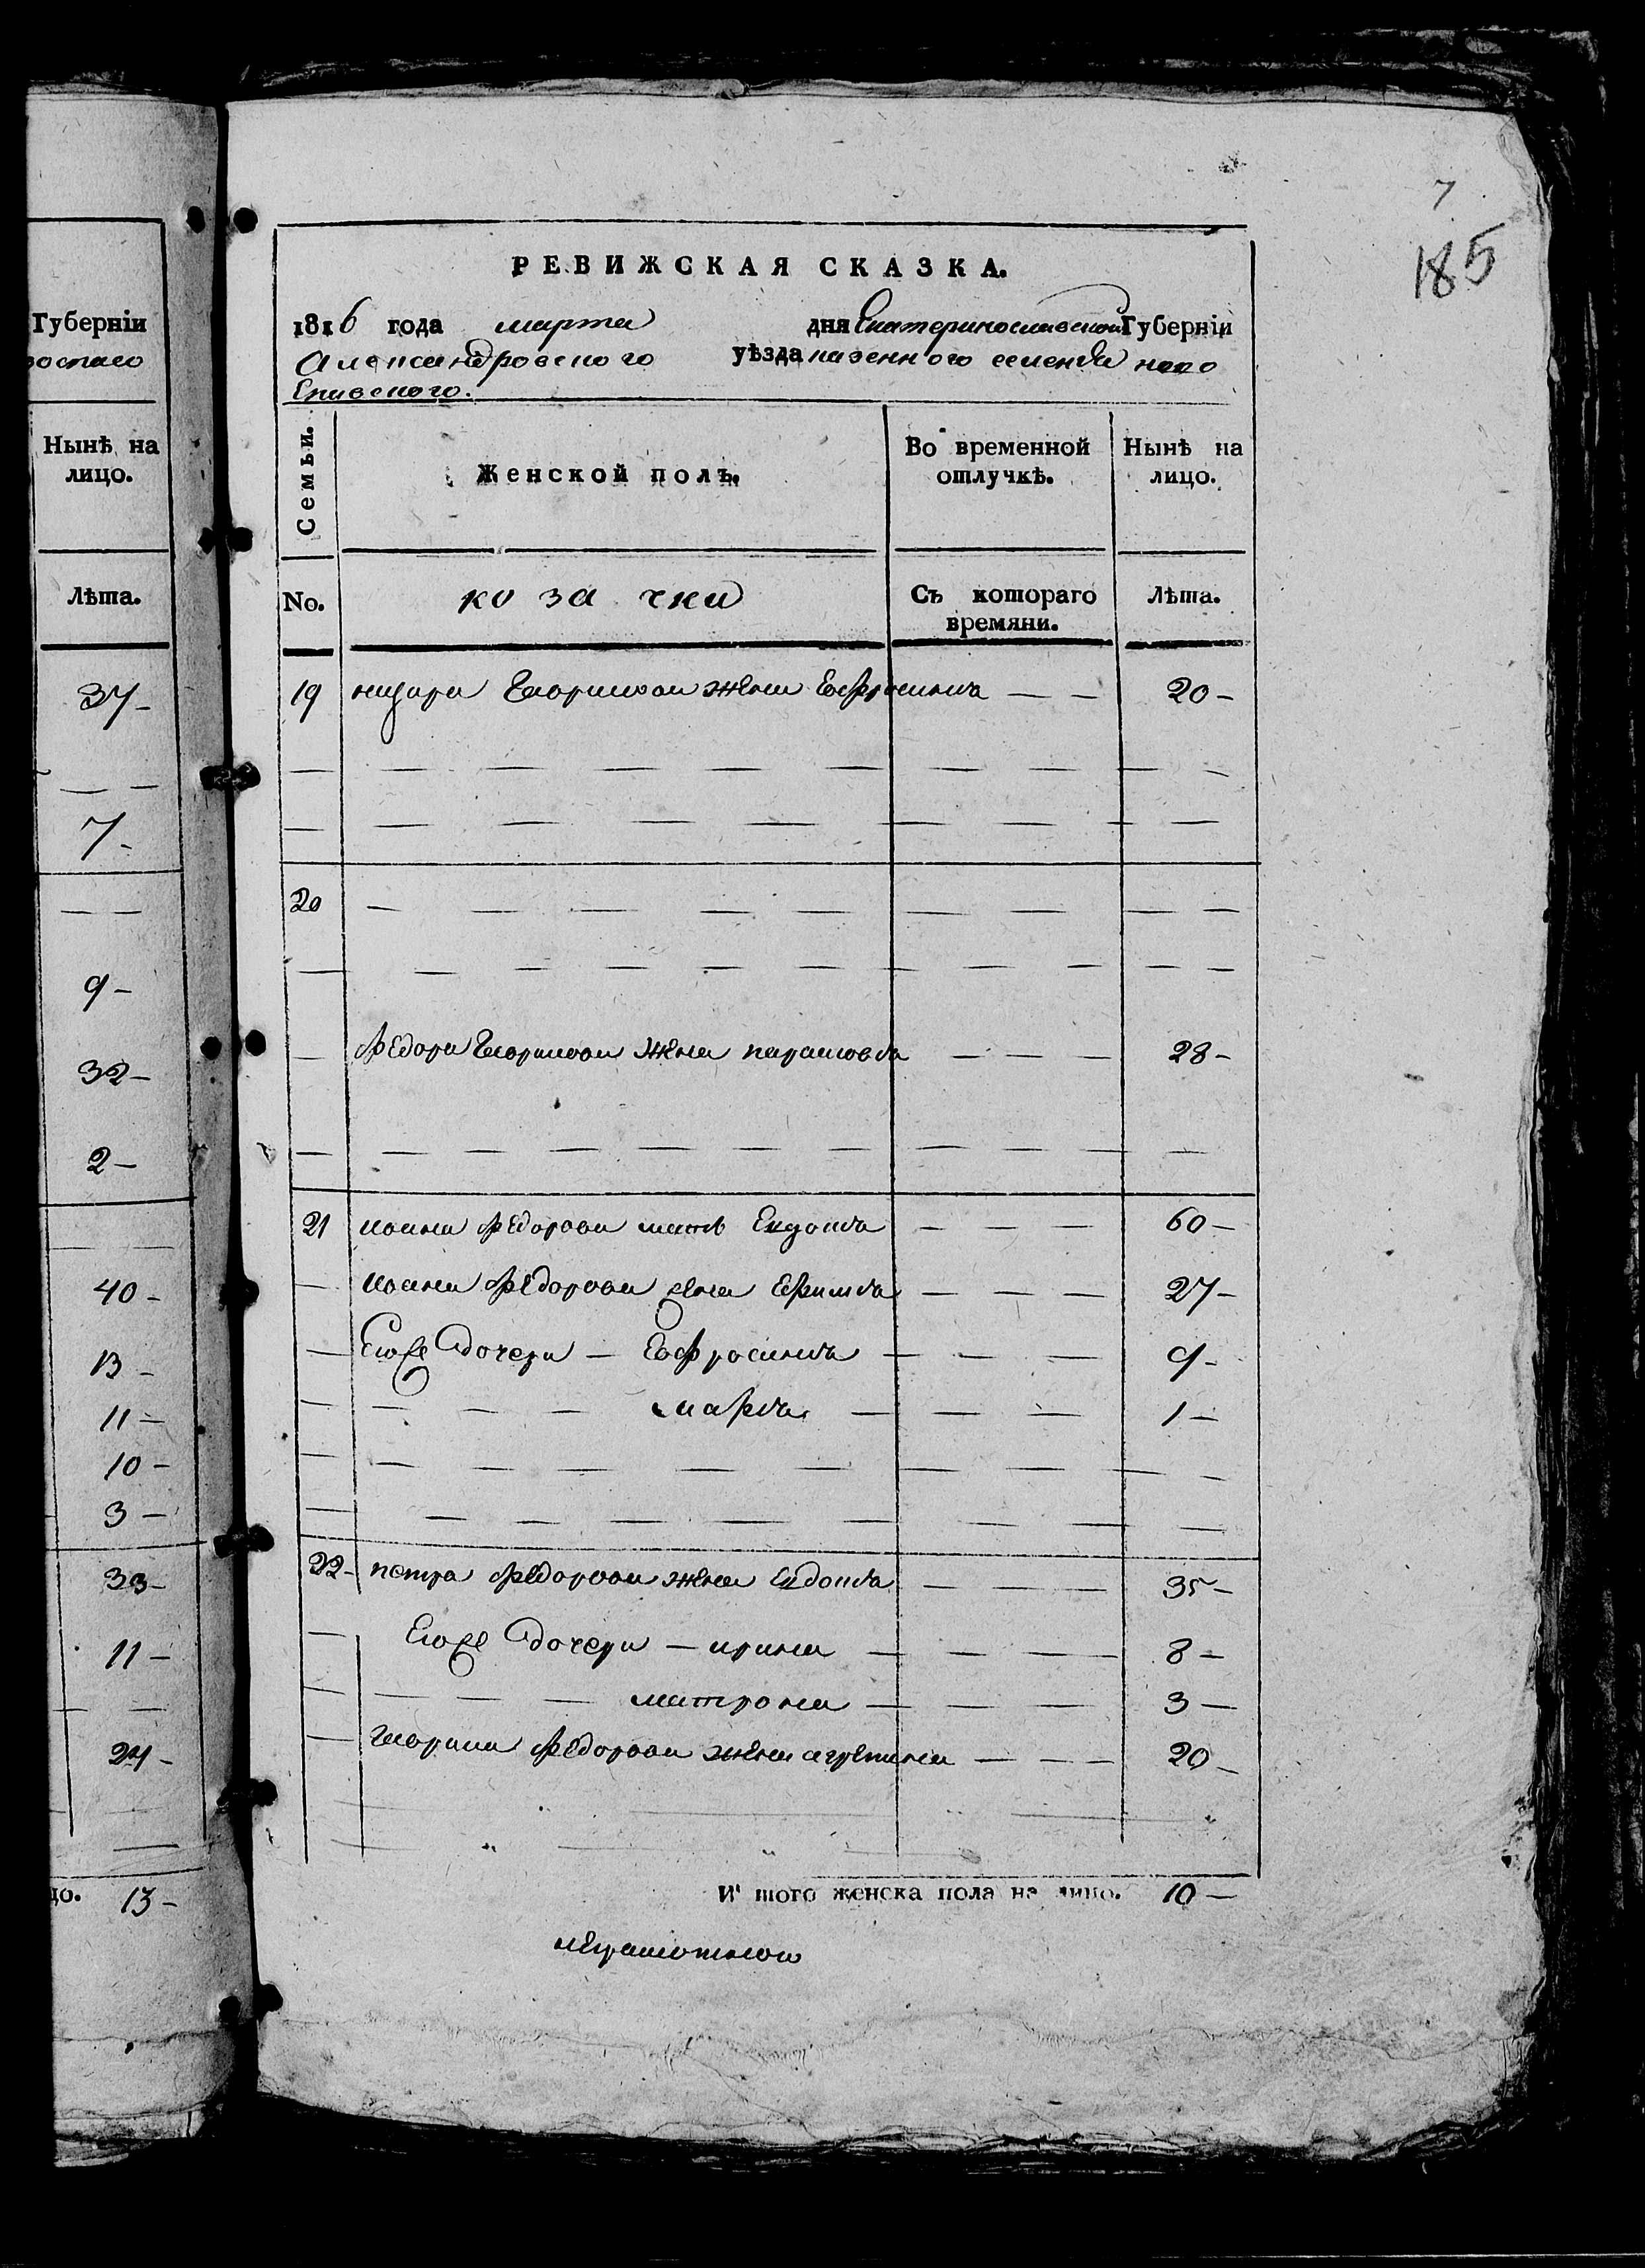 7
185
Губерніи
Нынѣ на
лицо.
Лѣта.
37-
7-
9-
32-
2-
40-
13-
11-
10-
3-
33-
11-
24-
13-
РЕВИЖСКАЯ СКАЗКА.
1816 года марта дня Екатеринославской Губерніи
Александровского уѣзда казенного селения ново
Спасского.
Семьи. Женской полъ. Во временной отлучкѣ. Нынѣ на лицо.
No. козачки Съ котораго времяни. Лѣта.
19 жена Евфросиния 20-
20
Федора жена парасковия 28-
21 иоана Федорова мать Евдокия 60-
иоана Федорова жена Ефимия 27-
Егоже дочери - Евфросиния 9-
марфа 1-
22- петра Федорова жена Евдокия 35-
Егоже дочери - ирина 8-
матрона 3-
Федорова жена агрепина 20-
И того женска пола на лицо. 10-